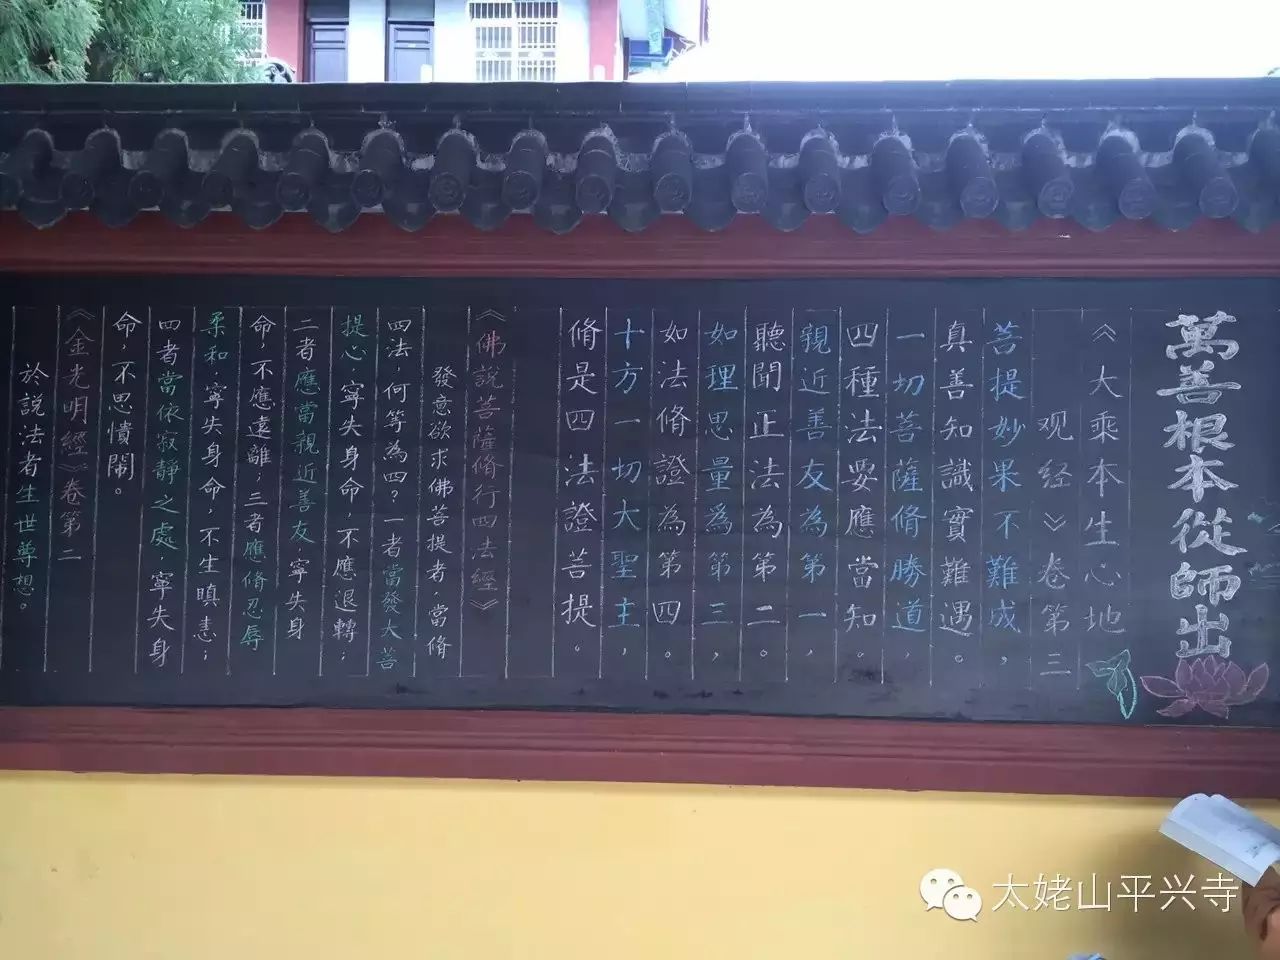 萬善根本從師出
《大乘本生心地
观经》卷第三
菩提妙果不難成，
真善知識實難遇。
一切菩薩脩勝道，
四種法要應當知。
親近善友為第一，
聽聞正法為第二。
如理思量爲第三，
如法脩證為第四。
十方一切大聖主，
脩是四法證菩提。
《佛說菩薩脩行四法經》
發意欲求佛菩提者，當脩
四法，何等為四？一者當發大菩
提心，寧失身命，不應退轉；
二者應當親近善友，寧失身
命，不應遠離；三者應脩忍辱
柔和，寧失身命，不生瞋恚；
四者當依寂靜之處，寧失身
命，不思憒鬧。
《金光明經》卷第二
於說法者生世尊想。
太姥山平兴寺